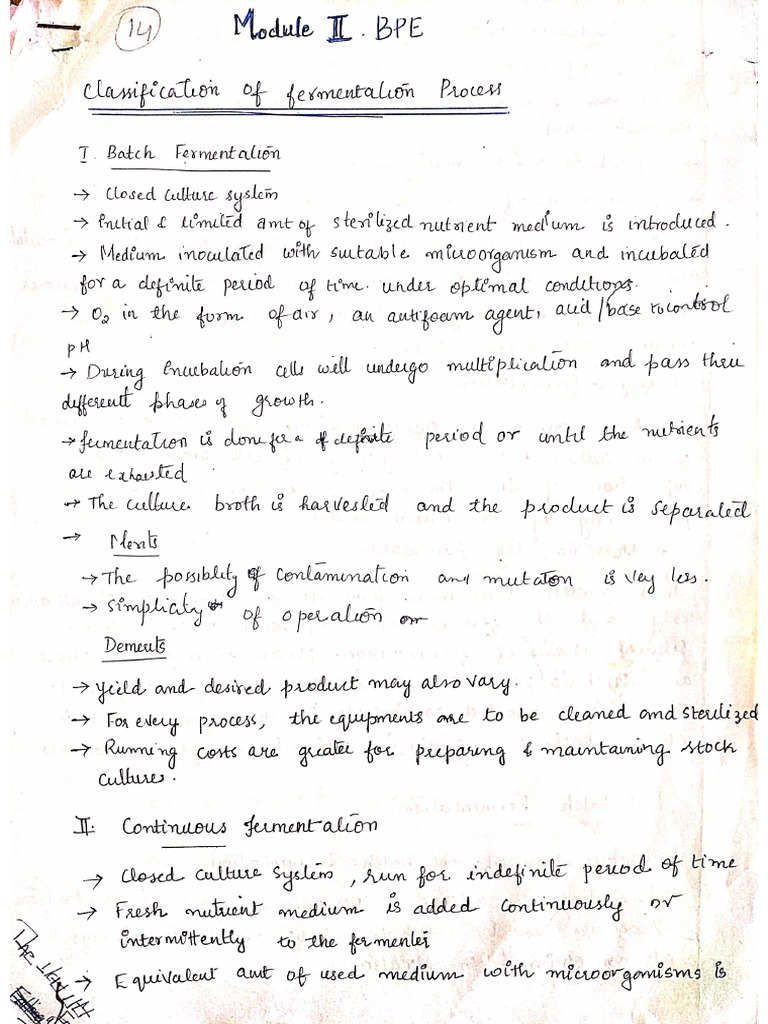 14
Module II. BPE
Classification of fermentation Process
I. Batch Fermentation
→ Closed culture system
→ Initial & limited amt of sterilized nutrient medium is introduced.
→ Medium inoculated with suitable microorganism and incubated
for a definite period of time under optimal conditions.
→ O2 in the form of air, an antifoam agent, acid/base to control
pH
→ During Incubation cells well undergo multiplication and pass thru
different phases of growth.
→ fermentation is done for a definite period or until the nutrients
are exhausted
→ The culture broth is harvested and the product is separated
→ Merits
→ The possiblity of contamination and mutation is very less.
→ Simplicity of operation
Demerits
→ Yield and desired product may also vary.
→ For every process, the equipments are to be cleaned and sterilized
→ Running costs are greater for preparing & maintaining stock
culture.
II. Continuous fermentation
→ Closed culture system, run for indefinite period of time
→ Fresh nutrient medium is added continuously or
intermittently to the fermenter
→ Equivalent amt of used medium with microorganisms is